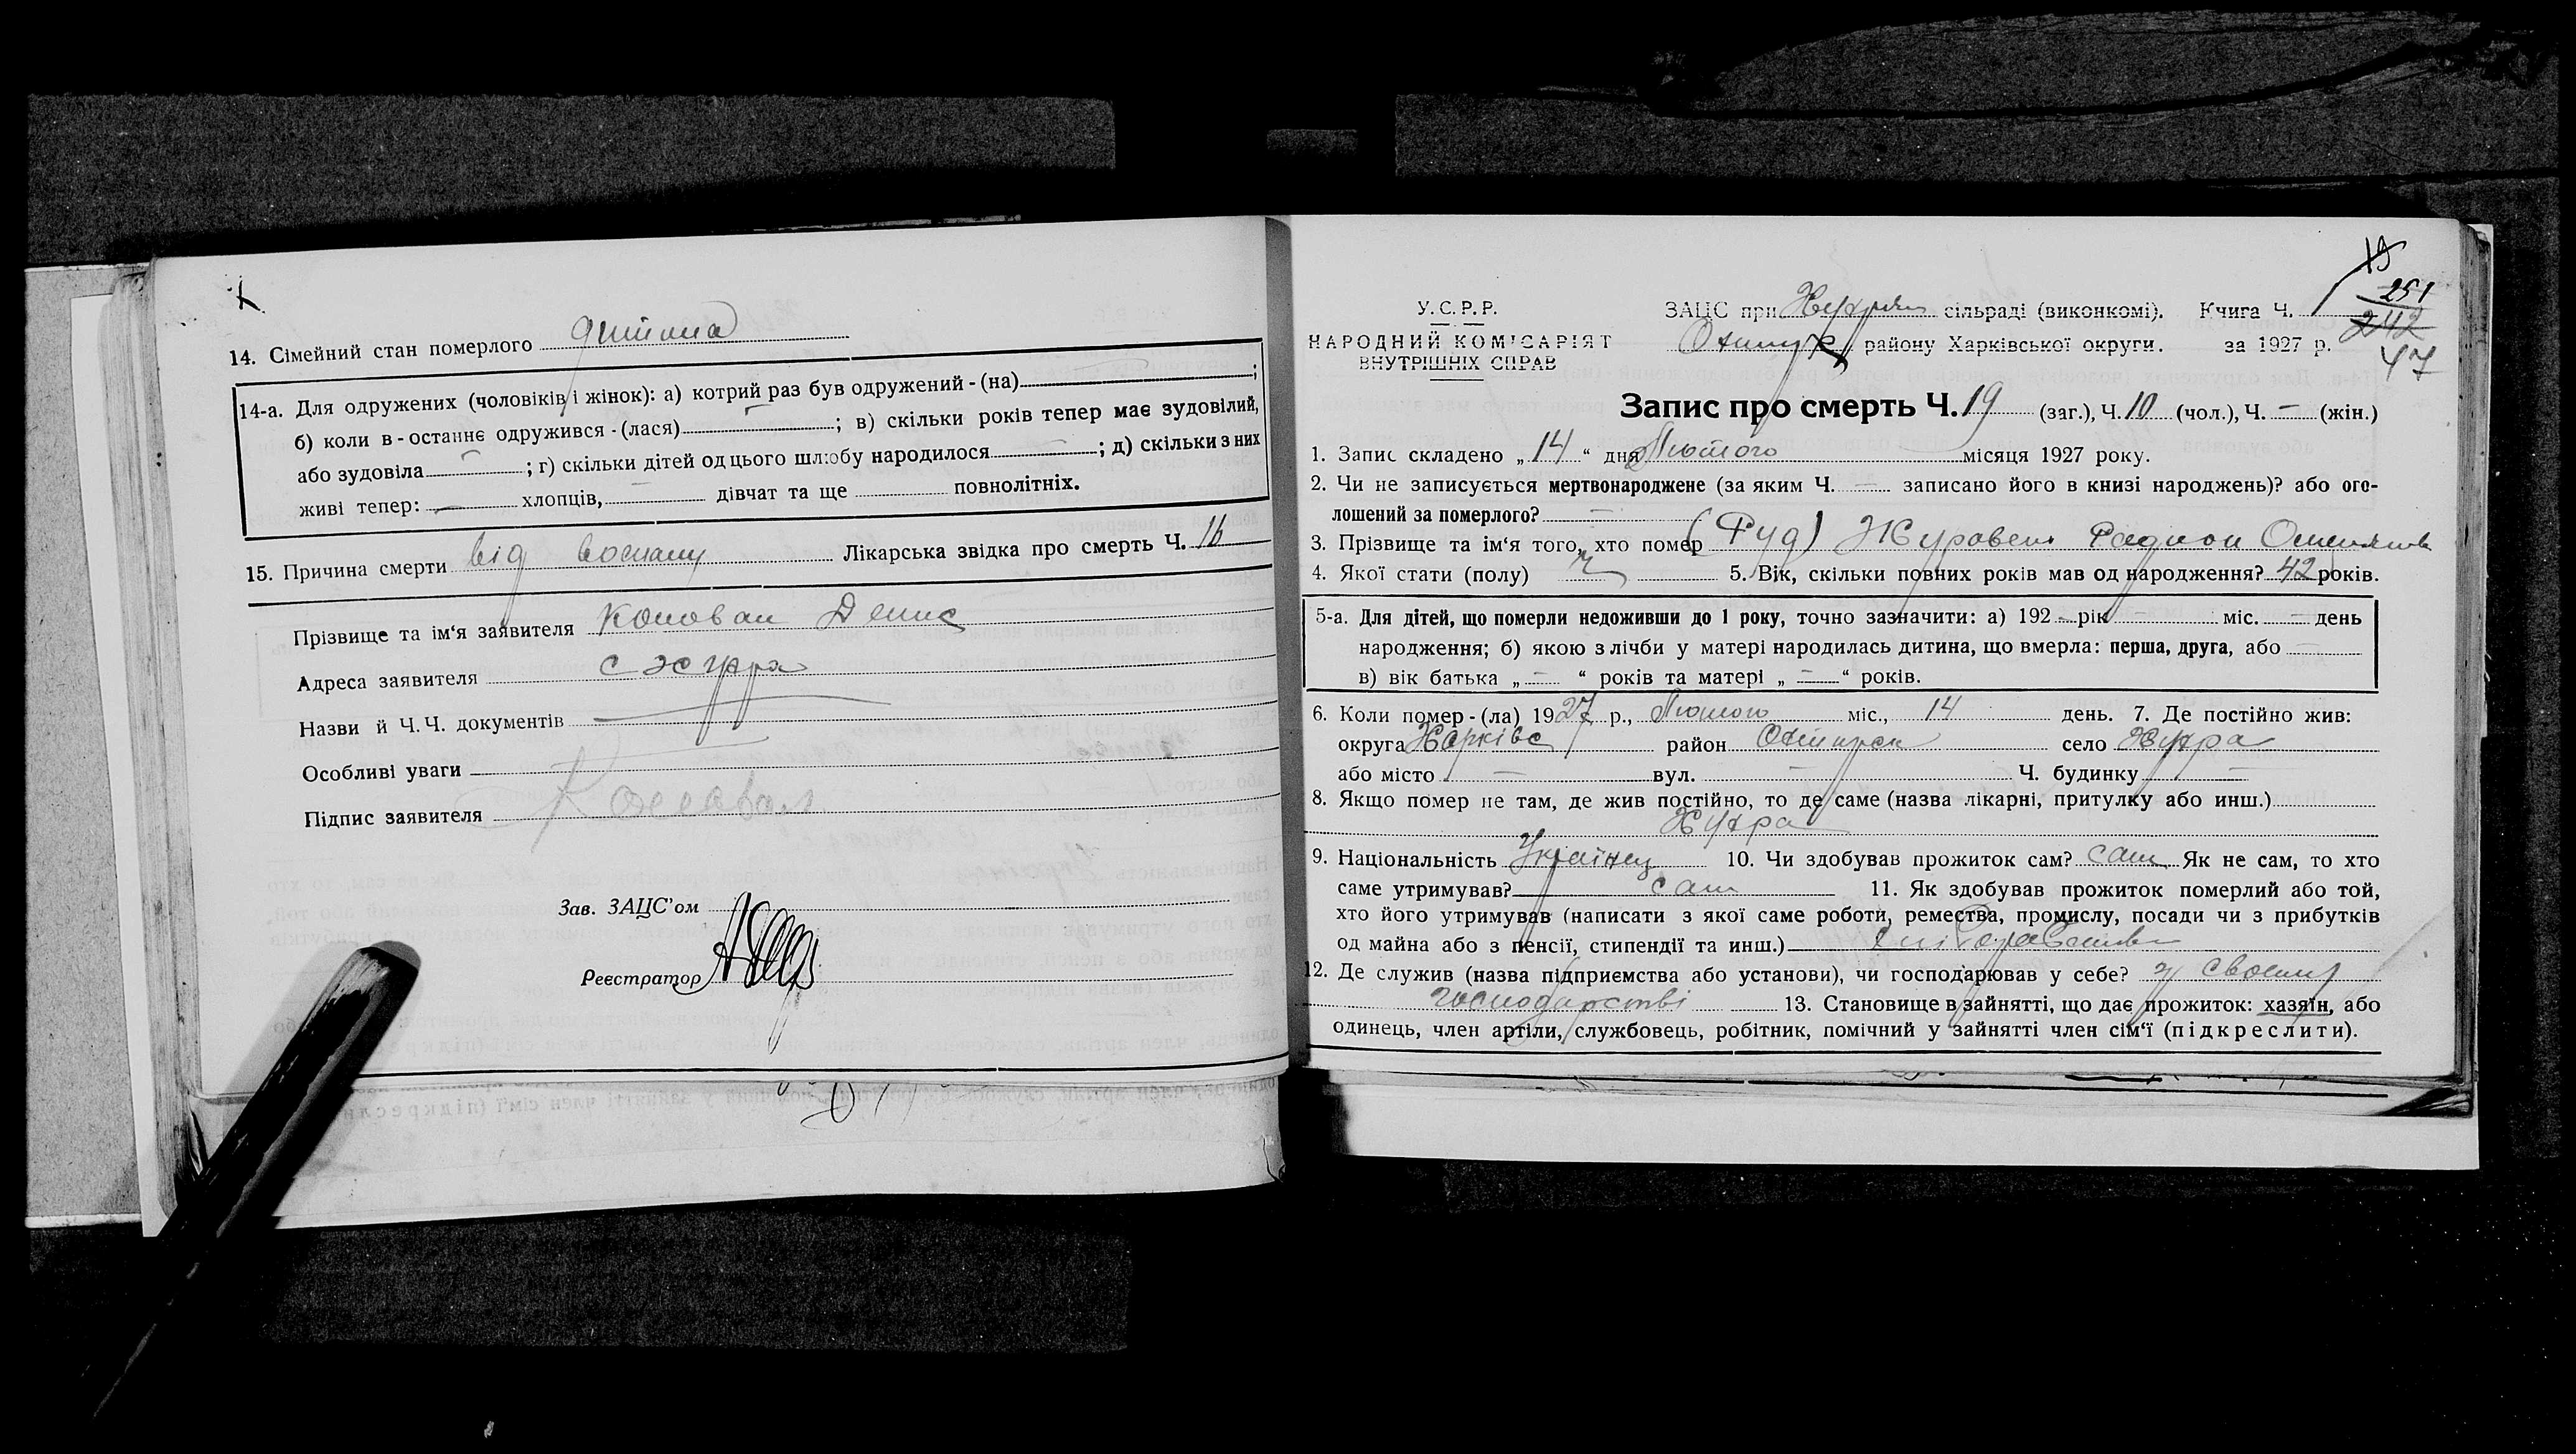 14. Сімейний стан померлого дитина
14-а. Для одружених (чоловіків і жінок): а) котрий раз був одружений - (на) ;
б) коли в - останнє одружився - (лася) — ; в) скільки років тепер має зудовілий,
або зудовіла — ; г) скільки дітей од цього шлюбу народилося — ; д) скільки з них
живі тепер: — хлопців, — дівчат та ще повнолітніх.
15. Причина смерти від Лікарська звідка про смерть Ч. 16
Прізвище та ім'я заявителя Коновал Денис
Адреса заявителя с
Назви й Ч. Ч. документів —
Особливі уваги —
Підпис заявителя Коновал
Зав. ЗАЦС'ом
Реєстратор
15
251
242
47
У. С. Р. Р.
НАРОДНИЙ КОМІСАРІЯТ
ВНУТРІШНІХ СПРАВ
ЗАЦС при сільраді (виконкомі). Книга Ч.
району Харківської округи. за 1927 р.
Запис про смерть Ч. 19 (заг.), Ч. 10 (чол.), Ч. — (жін.)
1. Запис складено „ 14 “ дня Лютого місяця 1927 року.
2. Чи не записується мертвонароджене (за яким Ч. — записано його в книзі народжень)? або ого-
лошений за померлого? —
3. Прізвище та ім'я того, хто помер (Фуд) Журавель Радион
4. Якої стати (полу) ч 5. Вік, скільки повних років мав од народження? 42 років.
5-а. Для дітей, що померли недоживши до 1 року, точно зазначити: а) 192 — рік — міс. — день
народження; б) якою з лічби у матері народилась дитина, що вмерла: перша, друга, або —
в) вік батька „ — “ років та матері „ — “ років.
6. Коли помер - (ла) 1927 р., Лютого міс., 14 день. 7. Де постійно жив:
округа Харківс район село
або місто — вул. — Ч. будинку —
8. Якщо помер не там, де жив постійно, то де саме (назва лікарні, притулку або инш.)
9. Національність Українец 10. Чи здобував прожиток сам? сам Як не сам, то хто
саме утримував? сам 11. Як здобував прожиток померлий або той,
хто його утримував (написати з якої саме роботи, ремества, промислу, посади чи з прибутків
од майна або з пенсії, стипендії та инш.)
12. Де служив (назва підприємства або установи), чи господарював у себе? у своему
господарстві 13. Становище в зайнятті, що дає прожиток: хазяїн, або
одинець, член артіли, службовець, робітник, помічний у зайнятті член сім'ї (підкреслити).